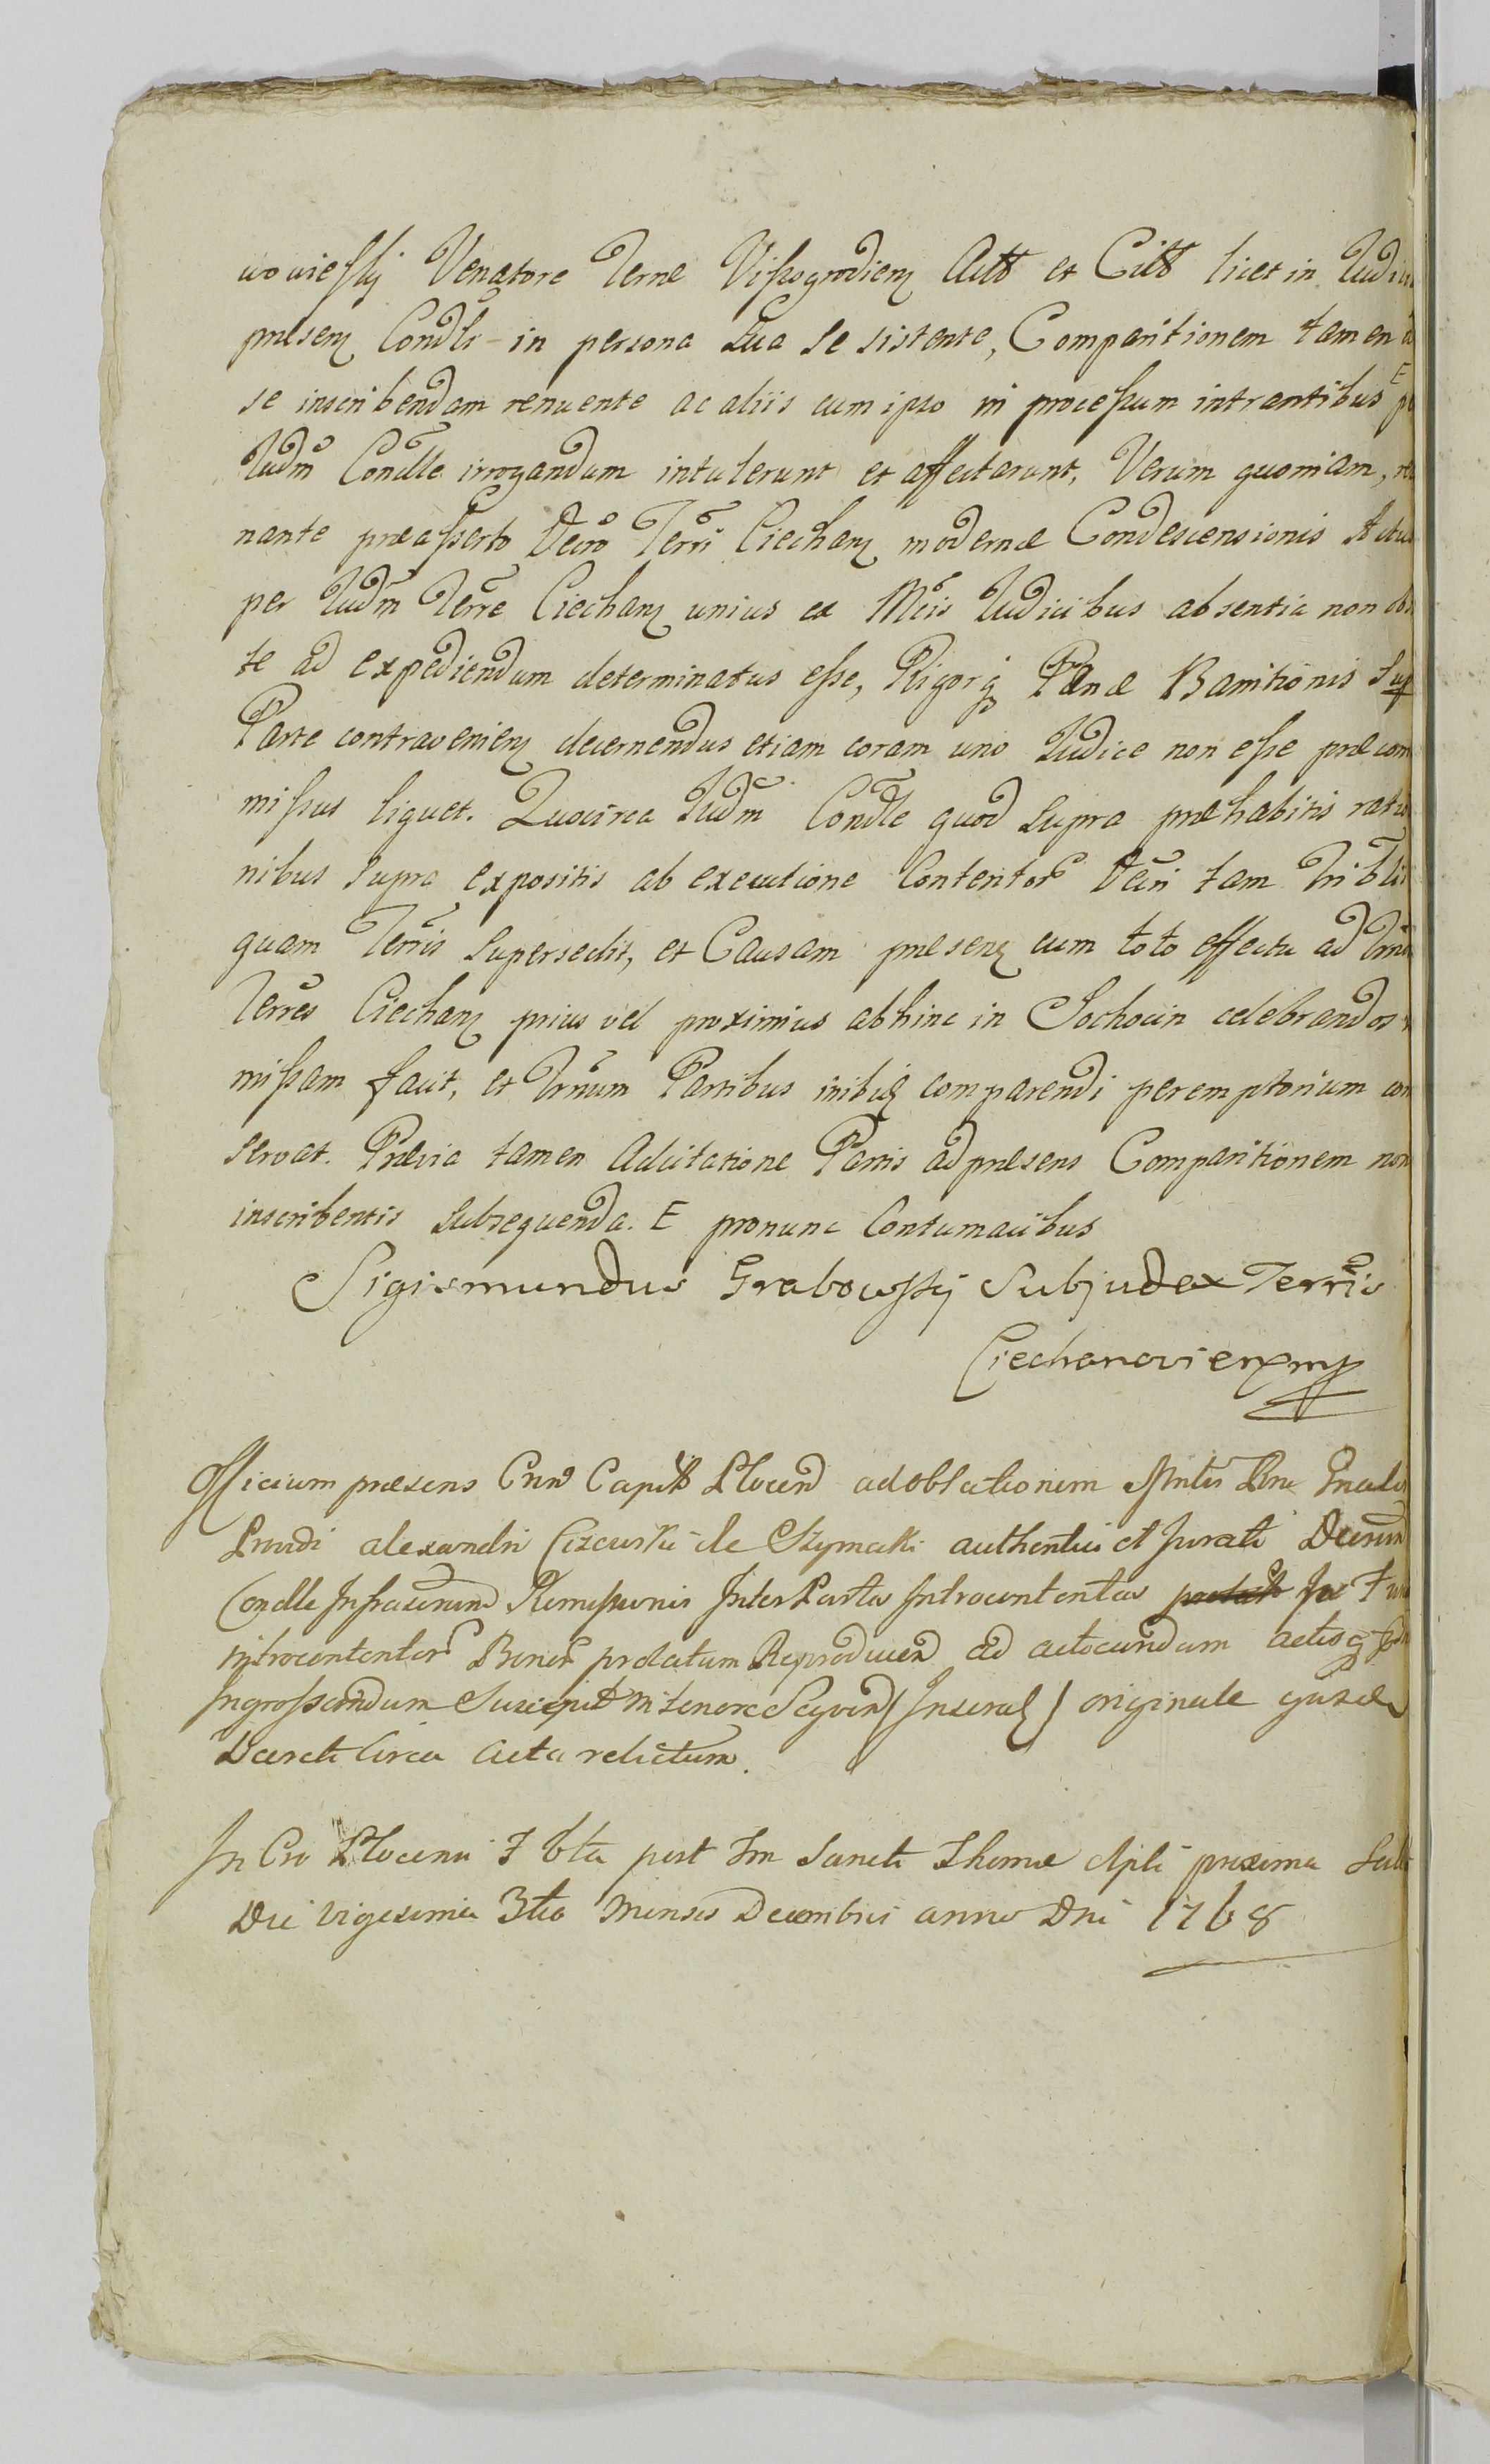 wowieskij Venatore Terræ Vissogrodienz Actt et Citt licet in Judici
præsenz Condli in persona Sua se sistente, Comparitionem tamen ad
se inscribendam renuente ac aliis cum ipso in processum intrantibus E
Judm Condlle irrogandam intulerunt et affectarunt, Verum quoniam,
nante præasserto Decro Terri Ciechanz modernæ Condescensionis Actus
per Judm Terre Ciechanz unius ex Mcis Judicibus absentia non
te ad expediendum determinatus esse, Rigorq Pænæ Bannitionis Sup
Parte contravenienz decernendus etiam coram uno Judice non esse præcom
missus liquet. Quocirca Judm Condle quod Supra præhabitis ratio
nibus supra expositis ab executione Contentor Decri tam Triblis
quam Terris Supersedit, et Causam præsenz cum toto effectu ad Tmi
Terres Ciechanz prius vel proximius abhinc in Sochocin celebrandos
missam facit, et Trnum Partibus inibiq comparendi peremptorium con
servat. Prævia tamen Adcitatione Partis ad præsens Comparitionem non
inscribentis Subsequenda. E pronunc Contumacibus
Sigismundus Grabowskij Subjudex Terris
Ciechanovienz mp
Officium præsens Cnn Capitt Plocen ad oblationem
alexandri de authentici et Jurati
Condlle Remissionis Inter Partes Introcontentas
introcontentor Bonor prolatum Reproducen ad acticandum actisq
Ingrossandum Suscepit in tenore Sequen / Inseral / originale ejusdem
Decreti Circa Acta relictum.
In Cro Plocensi Fbta post Fm Sancti Thomæ Apli proxima
Die vigesima 3tia Mensis Decembris anno Dni 1768